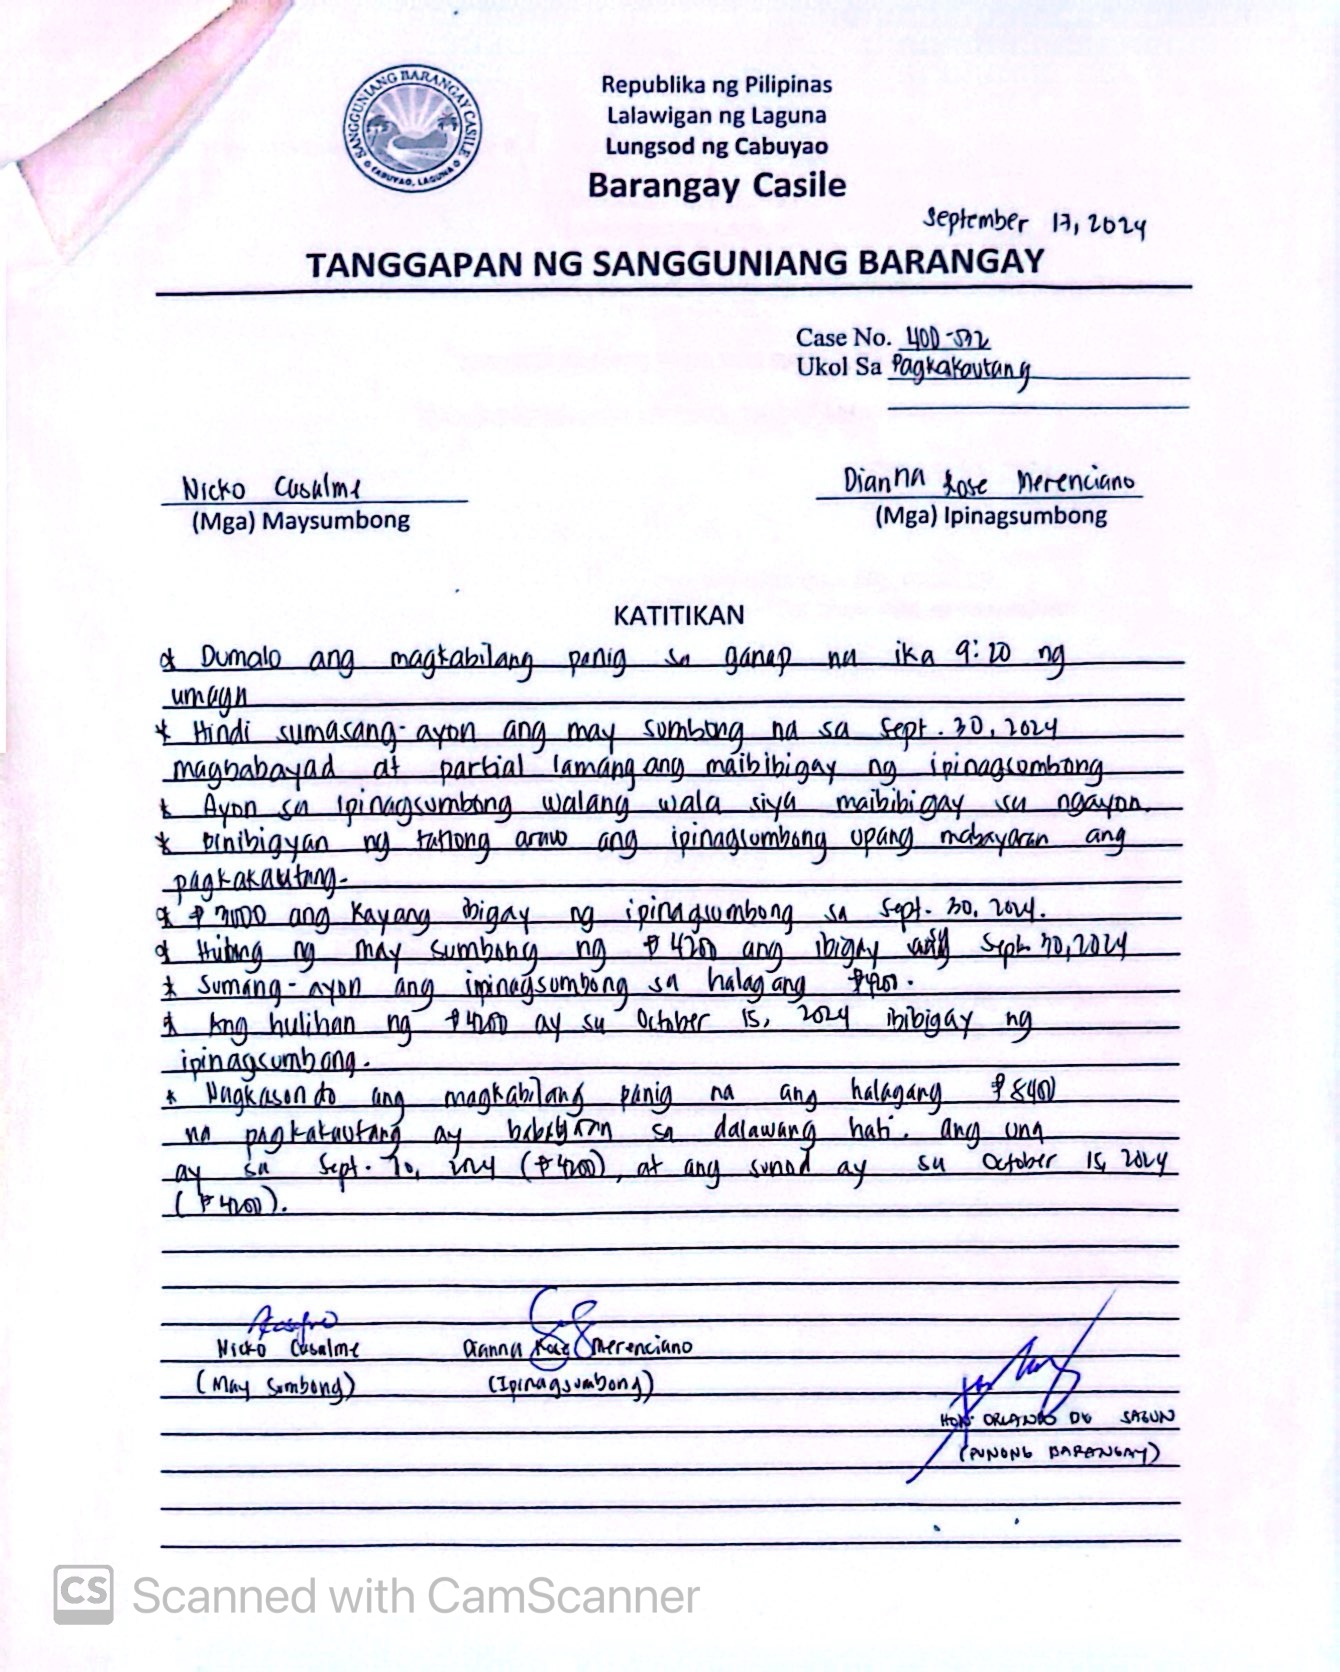 SANGGUNIANG BARANGAY CASILE
CABUYAO, LAGUNA
Republika ng Pilipinas
Lalawigan ng Laguna
Lungsod ng Cabuyao
Barangay Casile
September 17, 2024
TANGGAPAN NG SANGGUNIANG BARANGAY
Case No. 400-
Ukol Sa Pagkakautang
Nicko Casalme
(Mga) Maysumbong
Dianna Rose Merenciano
(Mga) Ipinagsumbong
KATITIKAN
* Dumalo ang magkabilang panig sa ganap na ika 9:20 ng
umaga
* Hindi sumasang-ayon ang may sumbong na sa Sept. 30, 2024
magbabayad at partial lamang ang maibibigay ng ipinagsumbong
* Ayon sa ipinagsumbong walang wala siya maibibigay sa ngayon.
* Binibigyan ng tatlong araw ang ipinagsumbong upang mabayaran ang
pagkakautang.
* ang kayang ibigay ng ipinagsumbong sa Sept. 30, 2024.
* Hiling ng may sumbong ng ₱ 4200 ang ibigay Sept. 30, 2024
* Sumang-ayon ang ipinagsumbong sa halagang ₱4200.
* Ang hulihan ng ₱4200 ay sa October 15, 2024 ibibigay ng
ipinagsumbong.
* Nagkasundo ang magkabilang panig na ang halagang ₱8400
na pagkakautang ay babayaran sa dalawang hati. ang una
ay sa Sept. 30, 2024 (₱4200), at ang sunod ay sa October 15, 2024
(₱4200).
Nicko Casalme
(May Sumbong)
Dianna Rose Merenciano
(Ipinagsumbong)
HON. ORLANDO DG SAGUN
(PUNONG BARANGAY)
CS Scanned with CamScanner